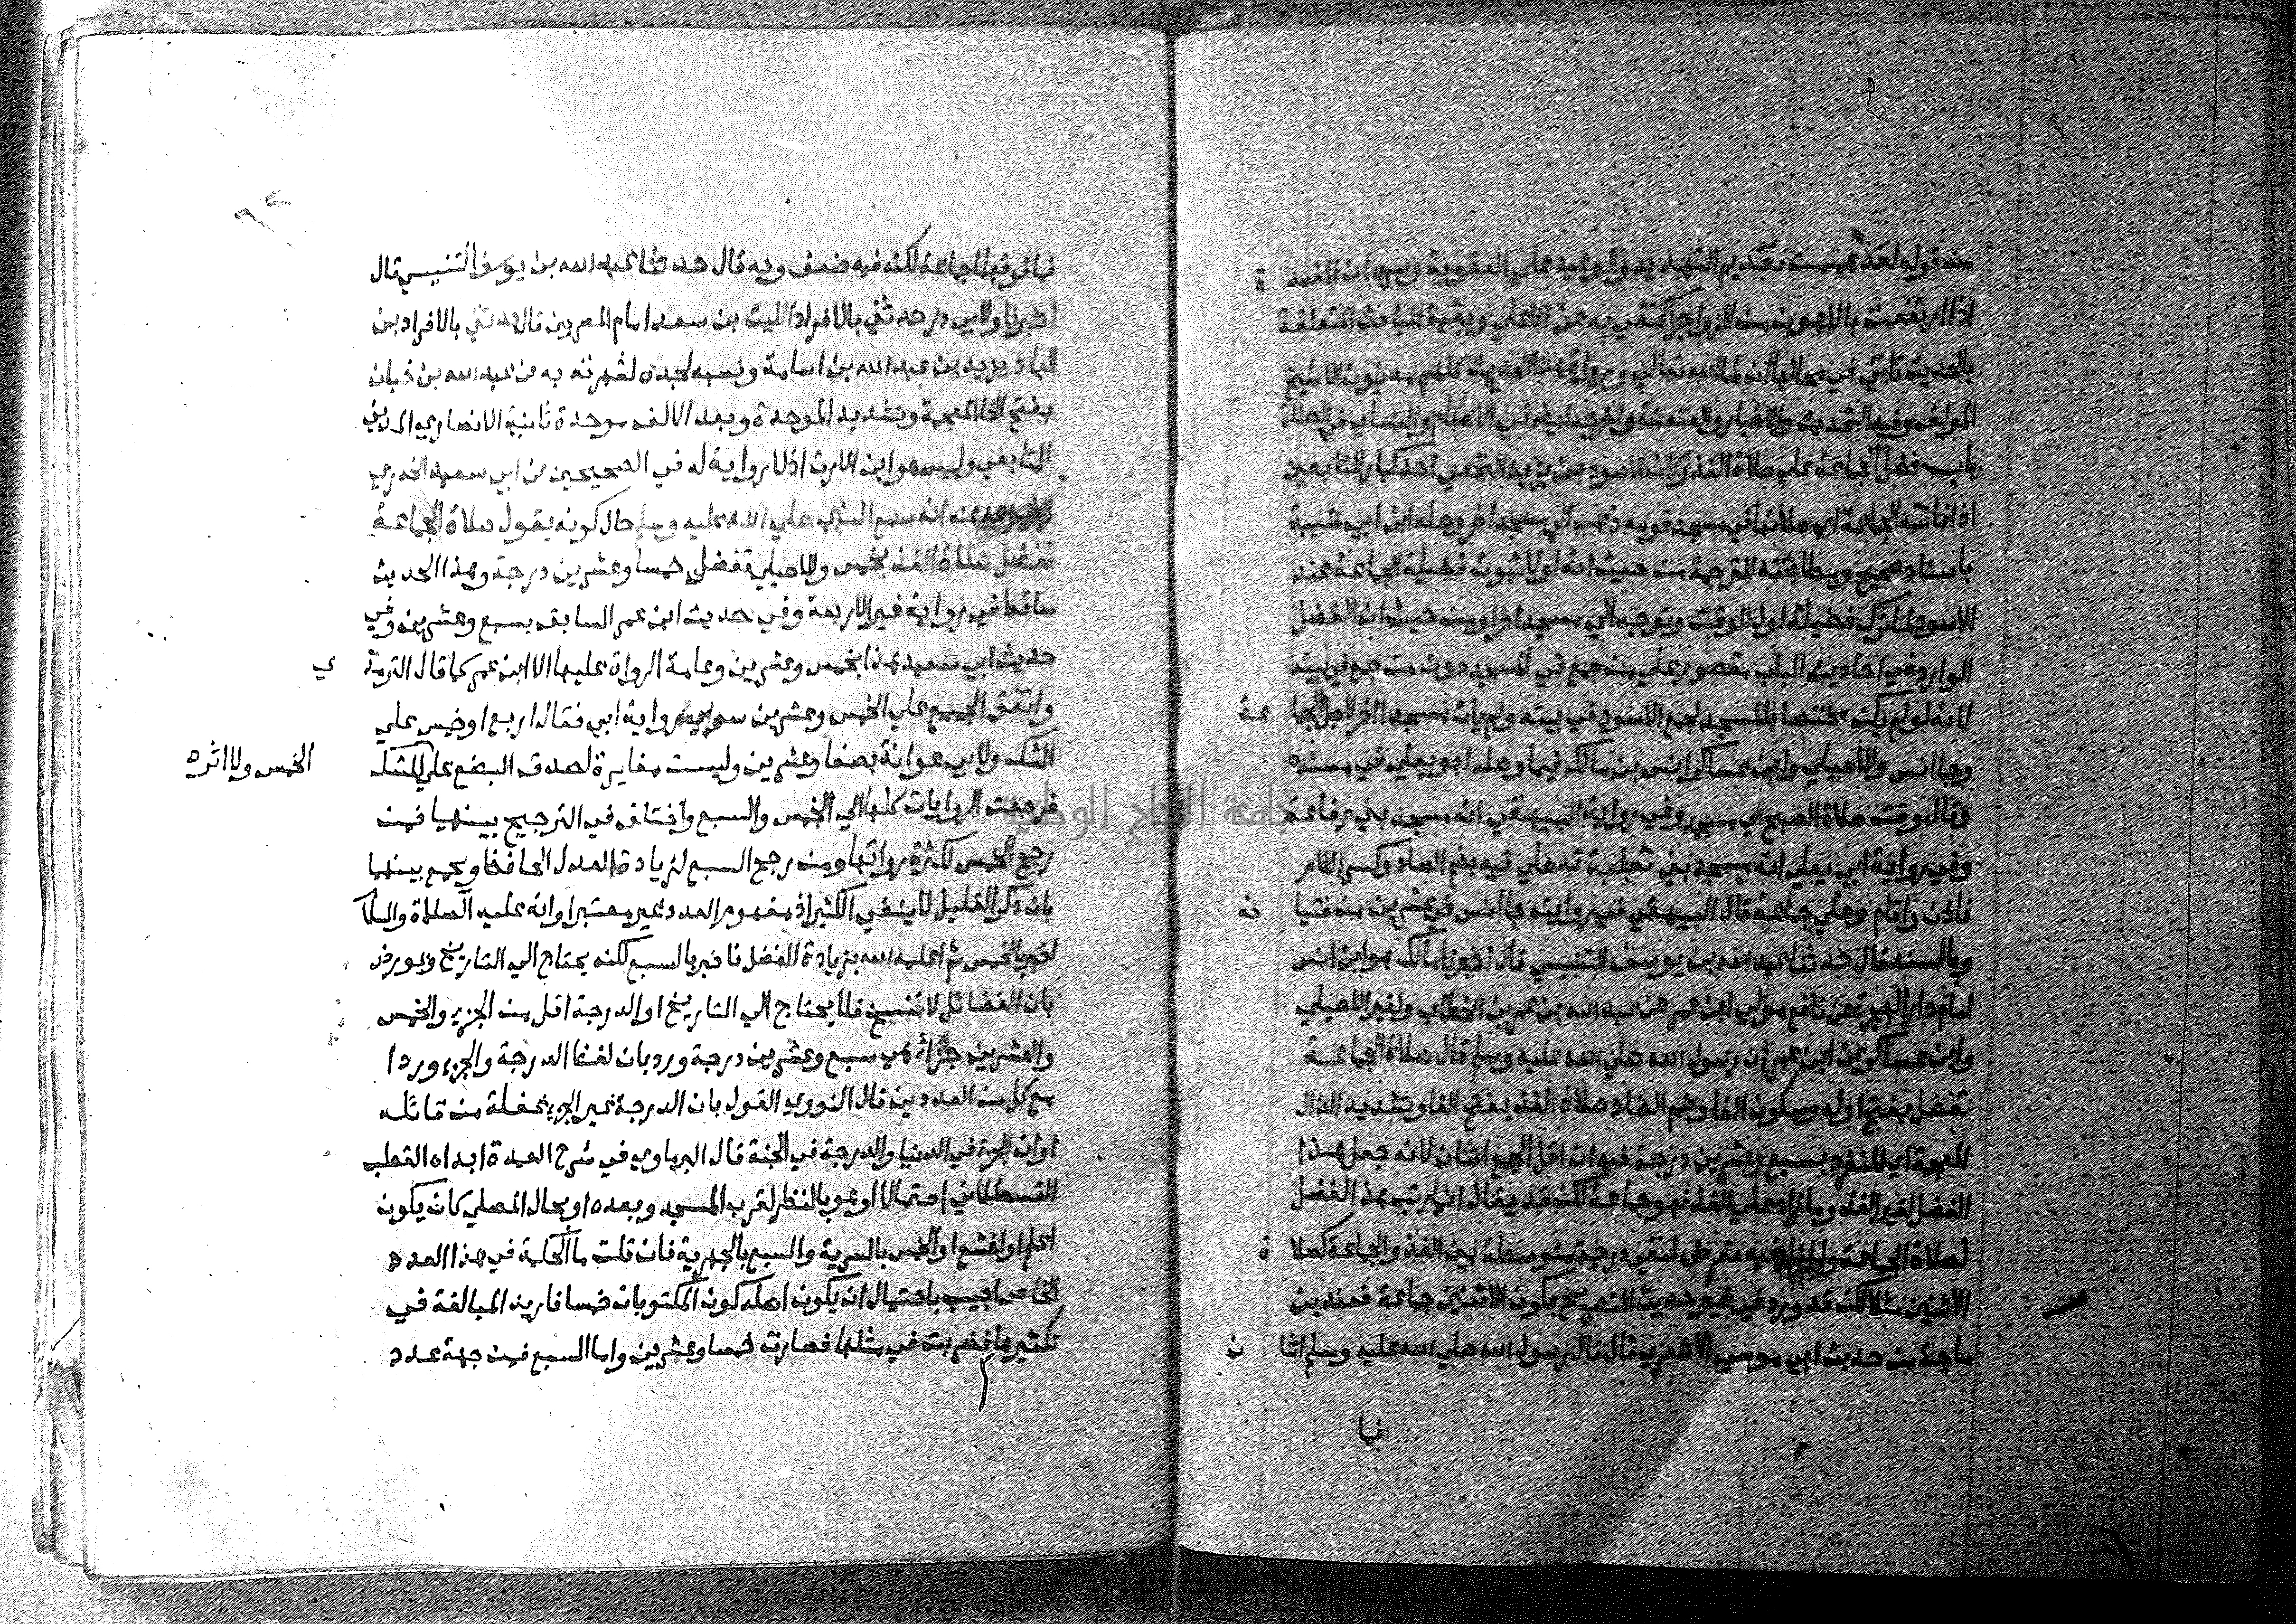 من قوله لقد هممت تقديم التهديد والوعيد علي العقوبة وسره ان المفسد ة
اذا ارتفعت بالاهون من الزواجر اكتفي به عن الاعلي وبقية المباحث المتعلقة
بالحديث تاتي في محالها ان شا الله تعالي ورواة هذا الحديث كلهم مدنيون الا شيخ
المولف وفيه التحديث والاخبار والعنعنة واخرجه ايضا في الاحكام والنساي في الصلاة
باب فضل الجماعة علي صلاة الفذ وكان الاسود بن يزيد النخعي احد كبار التابعين
اذا فاتته الجماعة اي صلاتها في مسجد قومه ذهب الي مسجد اخر وصله ابن ابي شيبة
باسناد صحيح ومطابقته للترجمة من حيث انه لولا ثبوت فضيلة الجماعة عند
الاسود لما ترك فضيلة اول الوقت وتوجه الي مسجد اخر او من حيث ان الفضل
الوارد في احاديث الباب مقصور علي من جمع في المسجد دون من جمع في بيته
لانه لو لم يكن مختصا بالمسجد لجمع الاسود في بيته ولم يات مسجدا اخر لاجل الجما عة
وجا انس وللاصيلي وابن عساكر انس بن مالك فيما وصله ابو يعلي في مسنده
وقال وقت صلاة الصبح الي مسجد وفي رواية البيهقي انه مسجد بني رفاعة
وفي رواية ابي يعلي انه مسجد بني ثعلبة قد صلي فيه بضم الصاد وكسر اللام
فاذن واقام وصلي جماعة قال البيهقي في روايته جا انس في عشرين من فتيا نه
وبالسند قال حدثنا عبد الله بن يوسف التنيسي قال اخبرنا مالك هو ابن انس
امام دار الهجرة عن نافع مولي ابن عمر عن عبد الله بن عمر بن الخطاب ولغير الاصيلي
وابن عساكر عن ابن عمر ان رسول الله صلي الله عليه وسلم قال صلاة الجماعة
تفضل بفتح اوله وسكون الفا وضم الضاد صلاة الفذ بفتح الفا وتشديد الذال
المعجمة اي المنفرد بسبع وعشرين درجة فيه ان اقل الجمع اثنان لانه جعل هذا
الفضل لغير الفذ وما زاد علي الفذ فهو جماعة لكن قد يقال انما رتب هذا الفضل
لصلاة الجماعة وليس فيه تعرض لنفي درجة متوسطة بين الفذ والجماعة كصلا ة
الاثنين مثلا لكن قد ورد في غير حديث التصريح بكون الاثنين جماعة فعند بن
ماجة من حديث ابي موسي الاشعري قال قال رسول الله صلي الله عليه وسلم اثنا ن
فما
فما فوقهما جماعة لكنه فيه ضعف وبه قال حدثنا عبد الله بن يوسف التنيسي قال
اخبرنا ولابي ذر حدثني بالافراد الليث بن سعد امام المصريين قال حدثني بالافراد بن
الهاد يزيد بن عبد الله بن اسامة ونسبه لجده لشهرته به عن عبد الله بن خباب
بفتح الخا المعجمة وتشديد الموحدة وبعد الالف موحدة ثانية الانصاري المدني
التابعي وليس هو ابن الارت اذ لا رواية له في الصحيحين عن ابي سعيد الخدري
رضي الله عنه انه سمع النبي صلي الله عليه وسلم حال كونه يقول صلاة الجماعة
تفضل صلاة الفذ بخمس وللاصيلي تفضل خمسا وعشرين درجة وهذا الحديث
ساقط في رواية غير الاربعة وفي حديث ابن عمر السابق بسبع وعشرين وفي
حديث ابي سعيد هذا بخمس وعشرين وعامة الرواة عليها الا ابن عمر كما قال الترمذ ي
واتفق الجميع علي الخمس وعشرين سوي رواية ابي فقال اربع او خمس علي
الشك ولابي عوانة بضعا وعشرين وليست مغايرة لصدق البضع علي الشك
الخمس ولا اثره
فرجعت الروايات كلها الي الخمس والسبع واختلف في الترجيح بينهما فمن
رجح الخمس لكثرة رواتها ومن رجح السبع لزيادة العدل الحافظ ويجمع بينهما
بان ذكر القليل لا ينفي الكثير اذ مفهوم العدد غير معتبر او انه عليه الصلاة والسلا
اخبر بالخمس ثم اعلمه الله بزيادة الفضل فاخبر بالسبع لكنه يحتاج الي التاريخ وعورض
بان الفضائل لا تنسخ فلا يحتاج الي التاريخ او الدرجة اقل من الجزء والخمس
والعشرين جزأ هي سبع وعشرين درجة ورد بان لفظ الدرجة والجزء وردا
مع كل من العددين قال النووي القول بان الدرجة غير الجزء غفلة من قائله
او ان الجزء في الدنيا والدرجة في الجنة قال البرماوي في شرح العمدة ابداه القطب
القسطلاني احتمالا او هو بالنظر لقرب المسجد وبعده او بحال المصلي كان يكون
اعلم او اخشع او الخمس بالسرية والسبع بالجهرية فان قلت ما الحكمة في هذا العدد
الخاص اجيب باحتمال ان يكون اصله كون المكتوبات خمسا فاريد المبالغة في
تكثيرها فضربت في مثلها فصارت خمسا وعشرين واما السبع فمن جهة عدد
جامعة النجاح الوطنية